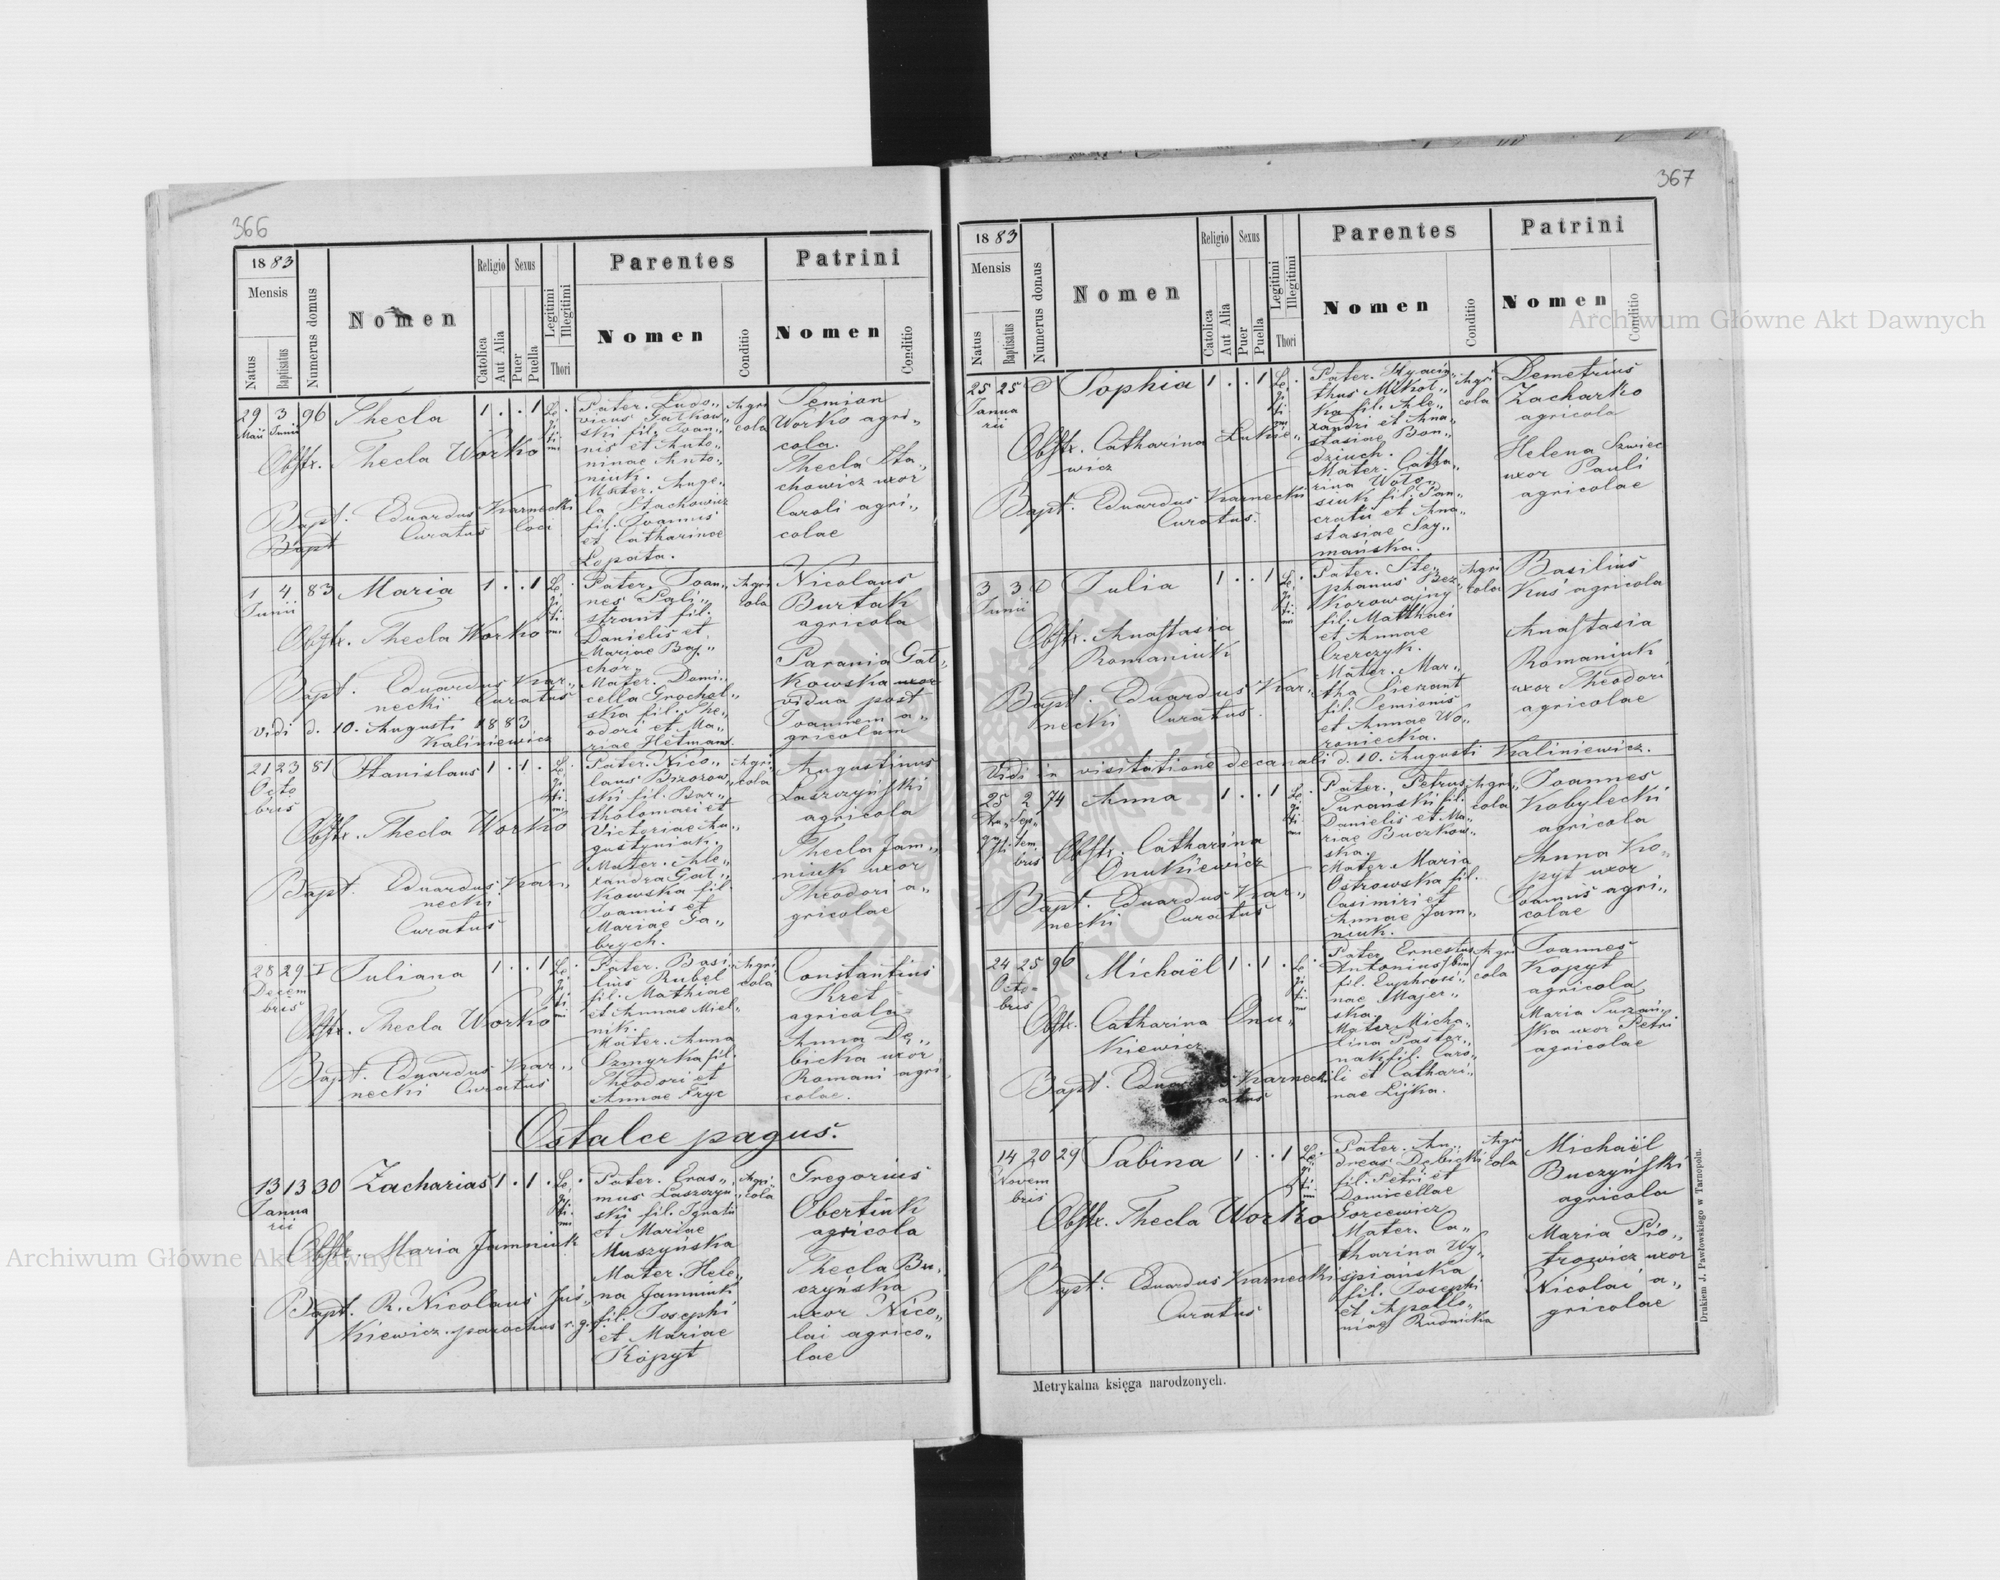 366
1883
Mensis
Natus
Baptisatus
Numerus domus
Nomen
Religio
Catolica
Aut Alia
Sexus
Puer
Puella
Legitimi
Illegitimi
Thori
Parentes
Nomen
Conditio
Patrini
Nomen
Conditio
29 Maii
3 Junii
96
Thecla
1 . . 1
Le„
gi
ti
mi
Obstr. Thecla Worko
Bapt. Eduardus Karnecki
Curatus loci
Bapt
Pater. Ludo„
vicus Gatkow„
ski fil. Joan„
nis et Anto„
ninae Anto„
niuk.
Mater. Ange„
la Stachowicz
fil. Joannis.
et Catharinae
Lopata.
Agri
cola
Semion
Worko agri„
cola.
Thecla Sta„
chowicz uxor
Caroli agri„
colae
1 4
Junii
83
Maria
1 . . 1
Le„
gi
ti
mi
Obstr. Thecla Worko
Bapt. Eduardus Kar„
necki Curatus
Vidi d. 10. Augusti 1883.
Kaliniewicz
Pater. Joan„
nes Pali„
strant fil.
Danielis et
Mariae Baj„
chor.
Mater. Domi„
cella Grochol„
ska fil. The„
odori et Ma„
riae Hetmans.
Agri
cola
Nicolaus
Burtak
agricola
Parania Gat„
kowska uxor
vidua post
Joannem a„
gricolam
21 23
Octo
bris
81
Stanislaus
1 . 1 .
Le„
gi
ti
mi
Obstr. Thecla Worko
Bapt. Eduardus Kar„
necki
Curatus
Pater. Nico„
laus Brzozow„
ski fil. Bar„
tholomaei et
Victoriae Au„
gustyniak.
Mater. Ale„
xandra Gat„
kowska fil.
Joannis et
Mariae Ga„
brych.
Agri
cola
Augustinus
Laszczyński
agricola
Thecla Jam„
niuk uxor
Theodori a„
gricolae
28 29
Decem
bris
I
Juliana
1 . . 1
Le„
gi
ti
mi
Obstr. Thecla Worko
Bapt. Eduardus Kar„
necki Curatus
Pater. Basi„
lius Rubel
fil. Mathiae
et Annae Miel„
nik.
Mater. Anna
Szmyrka fil.
Theodori et
Annae Fryc
Agri
cola
Constantius
Kret
agricola
Anna De„
bicka uxor
Romani agri„
colae.
Ostalce pagus.
13 13
Janua
rii
30
Zacharias
1 . 1 .
Le„
gi
ti
mi
Obstr. Maria Jamniuk
Bapt. R. Nicolaus Jus„
kiewicz parochus r. g.
Pater. Eras„
mus Laszczyń„
ski fil. Ignatii
et Mariae
Muszyńska
Mater. Hele„
na Jamniuk
fil. Josephi
et Mariae
Kopyt
Agri„
cola
Gregorius
Obertiuk
agricola
Thecla Bu„
czyńska
uxor Nico„
lai agrico„
lae
367
1883
Mensis
Natus
Baptisatus
Numerus domus
Nomen
Religio
Catolica
Aut Alia
Sexus
Puer
Puella
Legitimi
Illegitimi
Thori
Parentes
Nomen
Conditio
Patrini
Nomen
Conditio
25 25
Janua
rii
Sophia
1 . . 1
Le„
gi
ti
mi
Obstr. Catharina Lukie„
wicz
Bapt. Eduardus Karnecki
Curatus.
Pater. Hyacin„
thus Mikol„
ka fil. Ale„
xandri et Ana„
stasiae Bon„
dziuch.
Mater. Catha„
rina Woło„
siuk fil. Pan„
cratii et Ana„
stasiae Szy„
mańska.
Agri
cola
Demetrius
Zacharko
agricola
Helena Szwiec
uxor Pauli
agricolae
3 3
Junii
Julia
1 . . 1
Le„
gi
ti
mi
Obstr. Anastasia
Romaniuk
Bapt. Eduardus Kar„
necki Curatus.
Pater. Ste„
phanus Bez„
korowajny
fil. Matthaei
et Annae
Czerczyk.
Mater. Mar„
tha Sierant
fil. Semionis
et Annae Wo„
roniecka.
Agri
cola
Basilius
Kuś agricola
Anastasia
Romaniuk
uxor Theodori
agricolae
Vidi in visitatione decanali d. 10. Augusti Kaliniewicz.
25
Au„
gusti
2
Sep„
tem
bris
74
Anna
1 . . 1
Le„
gi
ti
mi
Obstr. Catharina
Onukiewicz
Bapt. Eduardus Kar„
necki Curatus
Pater. Petrus
Turanski fil.
Danielis et Ma„
riae Buczkow„
ska.
Mater Maria
Ostrowska fil.
Casimiri et
Annae Jam„
niuk.
Agri„
cola
Joannes
Kobylecki
agricola
Anna Ko„
pyt uxor
Joannis agri„
colae
24 25
Octo„
bris
96
Michaël
1 . 1 .
Le„
gi
ti
mi
Obstr. Catharina Onu„
kiewicz
Bapt. Eduardus Karnecki
Curatus
Pater Ernestus
Antonius /bin/
fil. Euphrosi„
nae Majer„
ska.
Mater Micha„
lina Pastor„
nak fil. Caro„
li et Cathari„
nae Lijka.
Agri
cola
Joannes
Kopyt
agricola
Maria Turań„
ska uxor Petri
agricolae
14 20
Novem
bris
29
Sabina
1 . . 1
Le„
gi
ti
mi
Obstr. Thecla Worko
Bapt. Eduardus Karnecki
Curatus
Pater. An„
dreas Debicki
fil. Petri et
Domicellae
Gorcewicz
Mater. Ca„
tharina Wy„
spiańska
fil. Josephi
et Apollo„
niae Rudnicka
Agri
cola
Michaël
Buczyński
agricola
Maria Pio„
trowicz uxor
Nicolai a„
gricolae
Metrykalna księga narodzonych.
Drukiem J. Pawłowskiego w Tarnopolu.
Archiwum Główne Akt Dawnych
Archiwum Główne Akt Dawnych